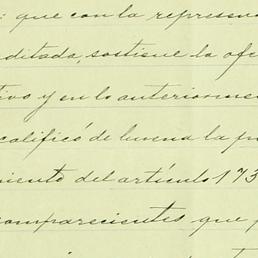 : que con la represen
editada, sostiene la ofe
tivo y en lo anteriormen
calificó de buena la p
miento del artículo 173
comparecientes que p